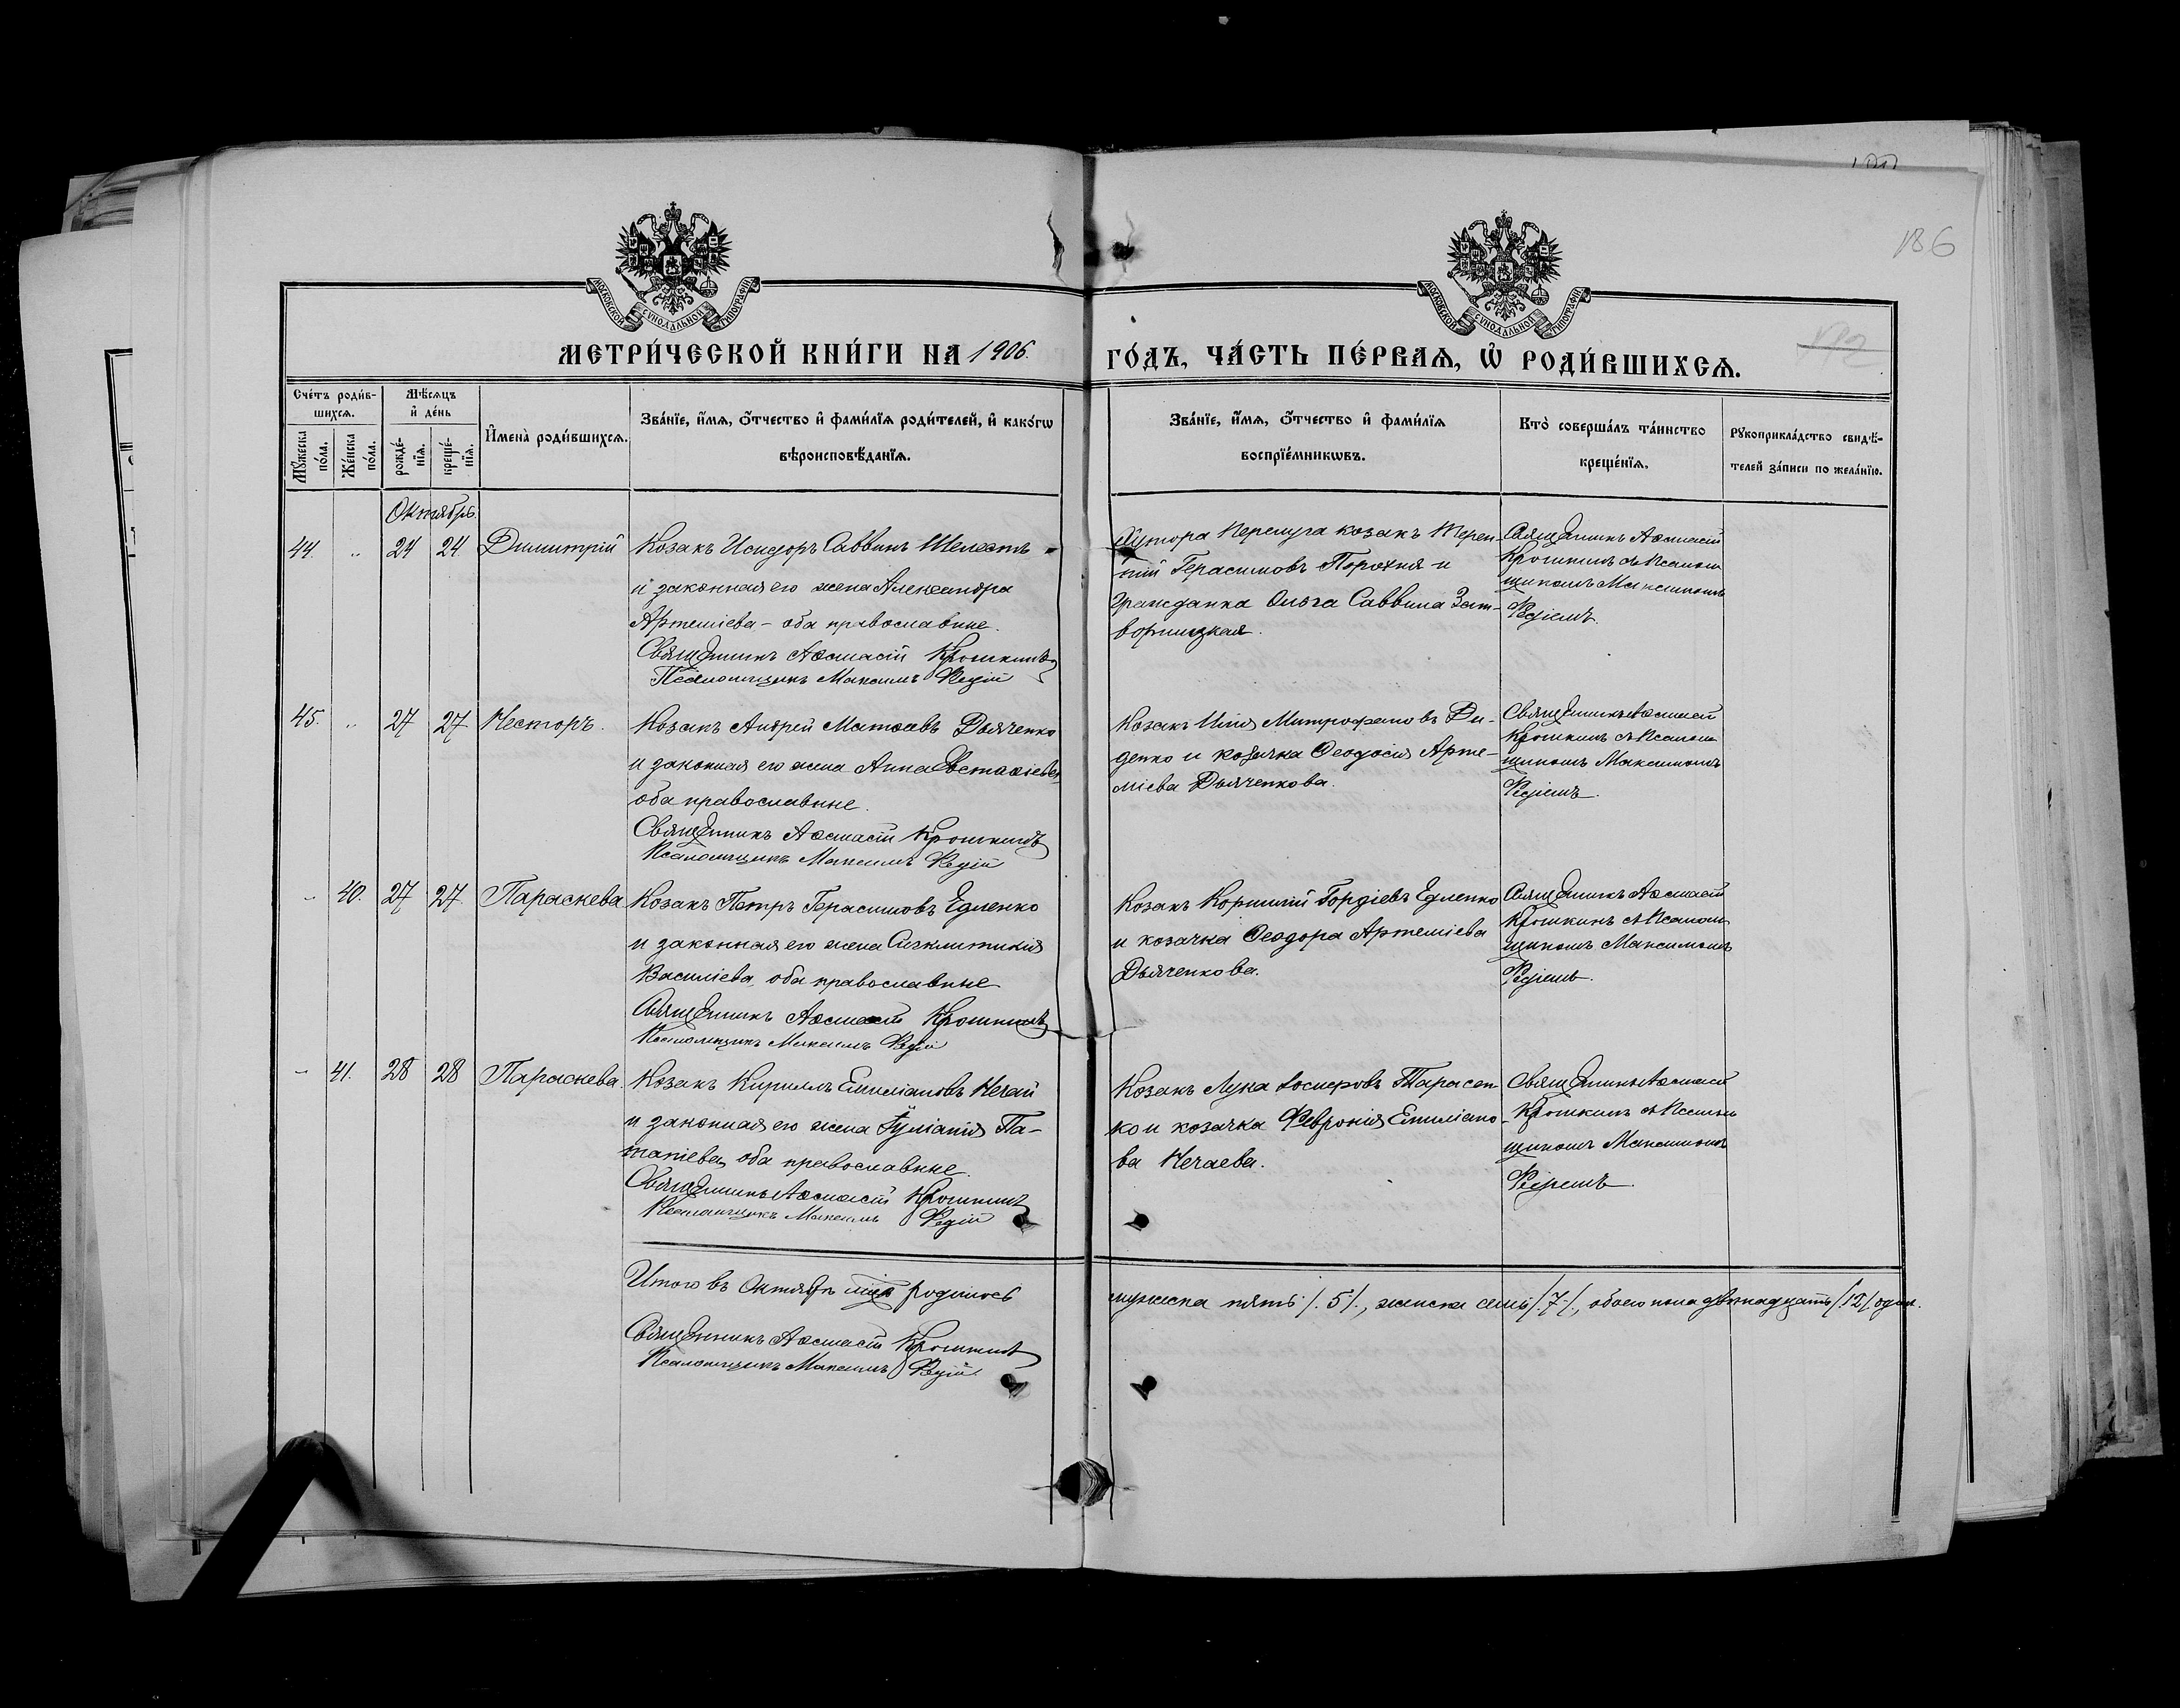 МОСКОВСКОЙ СѴНОДАЛЬНОЙ ТИПОГРАФІИ
МОСКОВСКОЙ СѴНОДАЛЬНОЙ ТИПОГРАФІИ
186
МЕТРИ́ЧЕСКОЙ КНИ́ГИ НА 1906.
ГО́ДЪ, ЧА́СТЬ ПЕ́РВАѦ, Ѽ РОДИ́ВШИХСѦ.
Сче́тъ роди́в-
шихсѧ.
Мѣ́сѧцъ
и҆ де́нь
Мꙋ́жеска
по́ла.
Же́нска
по́ла.
рожде́-
нїѧ.
креще́-
нїѧ.
И҆мена̀ роди́вшихсѧ.
Зва́нїе, и҆́мѧ, ѻ҆́тчество и҆ фами́лїѧ роди́телей, и҆ како́гѡ
вѣроисповѣ́данїѧ.
Зва́нїе, и҆́мѧ, ѻ҆́тчество и҆ фами́лїѧ
воспрїе́мникѡвъ.
Кто̀ соверша́лъ та́инство
креще́нїѧ.
Рꙋкоприкла́дство свидѣ́-
телей за́писи по жела́нїю.
Октябрь.
44 „ 24 24 Димитрій
Козакъ Исидоръ Саввинъ Шелестъ
и законная его жена Александра
Артеміева - оба православные.
Священникъ Аѳанасій Крошкинъ
Псаломщикъ Максимъ Редій
Хутора козакъ Терен-
тій Герасимовъ Порохня и
гражданка Ольга Саввина Зат-
ворницкая.
Священникъ Аѳанасій
Крошкинъ съ Псалом
щикомъ Максимомъ
Редіемъ.
45. „ 27 27 Несторъ.
Козакъ Андрей Матѳеевъ Дьяченко
и законная его жена Анна Евстаѳіева,
оба православные.
Священникъ Аѳанасій Крошкинъ
Псаломщикъ Максимъ Редій
Козакъ Илія Митрофановъ Ди-
денко и козачка Ѳеодосія Арте-
міева Дьяченкова.
Священникъ Аѳанасій
Крошкинъ съ Псалом
щикомъ Максимомъ
Редіемъ.
„ 40. 27 27. Параскева
Козакъ Петръ Герасимовъ Едленко
и законная его жена Сигклитикія
Василіева, оба православные
Священникъ Аѳанасій Крошкинъ
Псаломщикъ Максимъ Редій
Козакъ Корнилій Гордіевъ Едленко
и козачка Ѳеодора Артеміева
Дьяченкова.
Священникъ Аѳанасій
Крошкинъ съ Псалом
щикомъ Максимомъ
Редіемъ.
„ 41. 28 28 Параскева.
Козакъ Кириллъ Емиліановъ Нечай
и законная его жена Іуліанія По-
тапіева, оба православные.
Священникъ Аѳанасій Крошкинъ
Псаломщикъ Максимъ Редій
Козакъ Лука Іосифовъ Тарасен
ко и козачка Февронія Емиліано-
ва Нечаева.
Священникъ Аѳанасій
Крошкинъ съ Псалом
щикомъ Максимомъ
Редіемъ.
Итого въ Октябрѣ мцѣ родилось
мужеска пять /5/, женска семь /7/, обоего пола двѣнадцать /12/
Священникъ Аѳанасій Крошкинъ
Псаломщикъ Максимъ Редій.